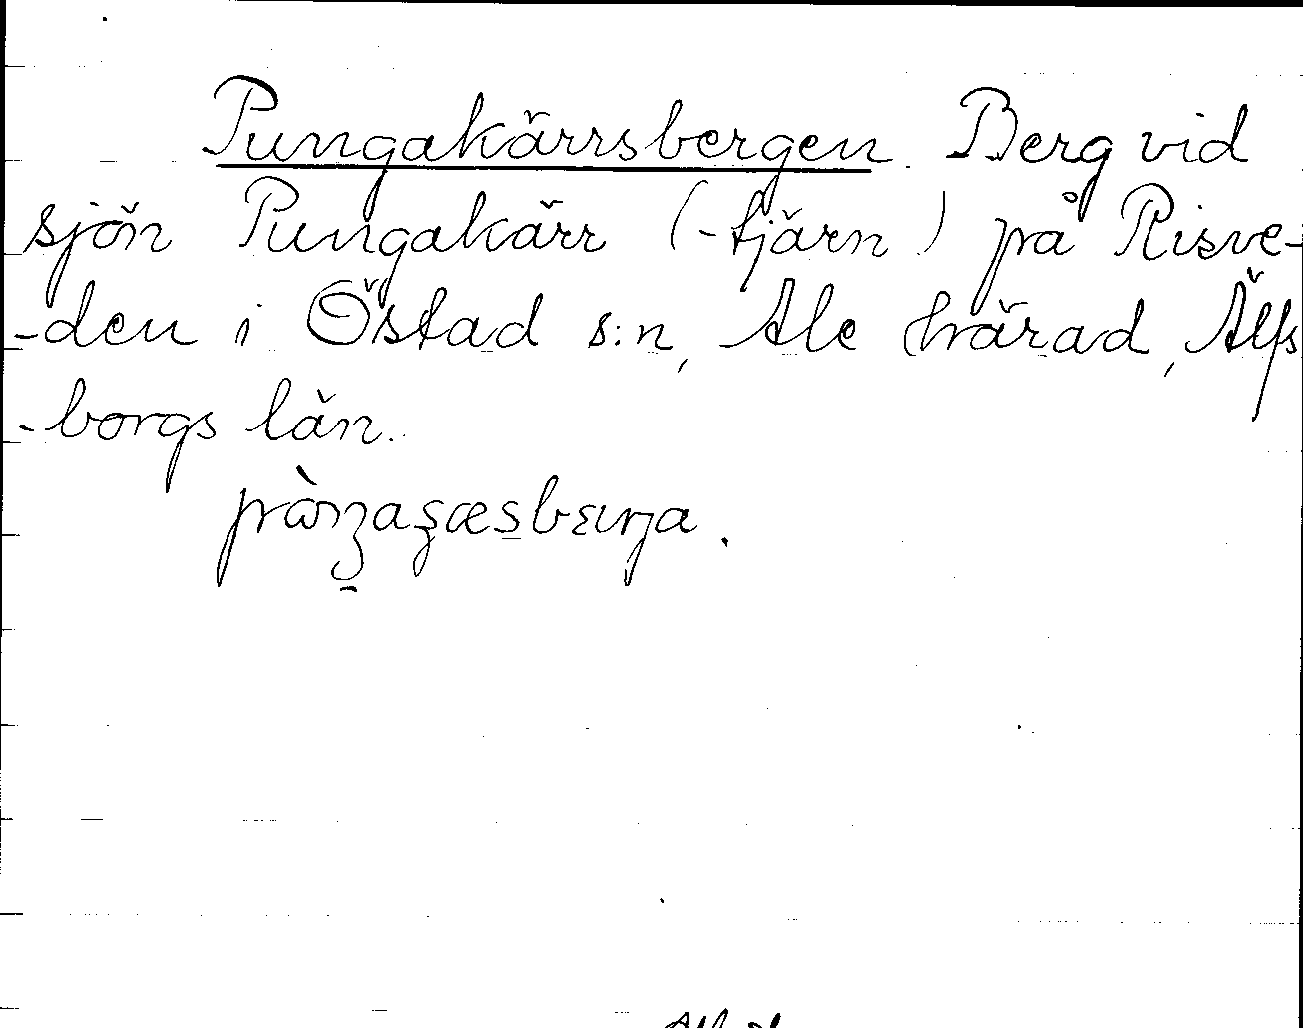 Pungakärrsbergen. Berg vid
sjön Pungakärr (-tjärn) på Risve-
-den i Östad s:n, Ale härad, Älfs
-borgs län.